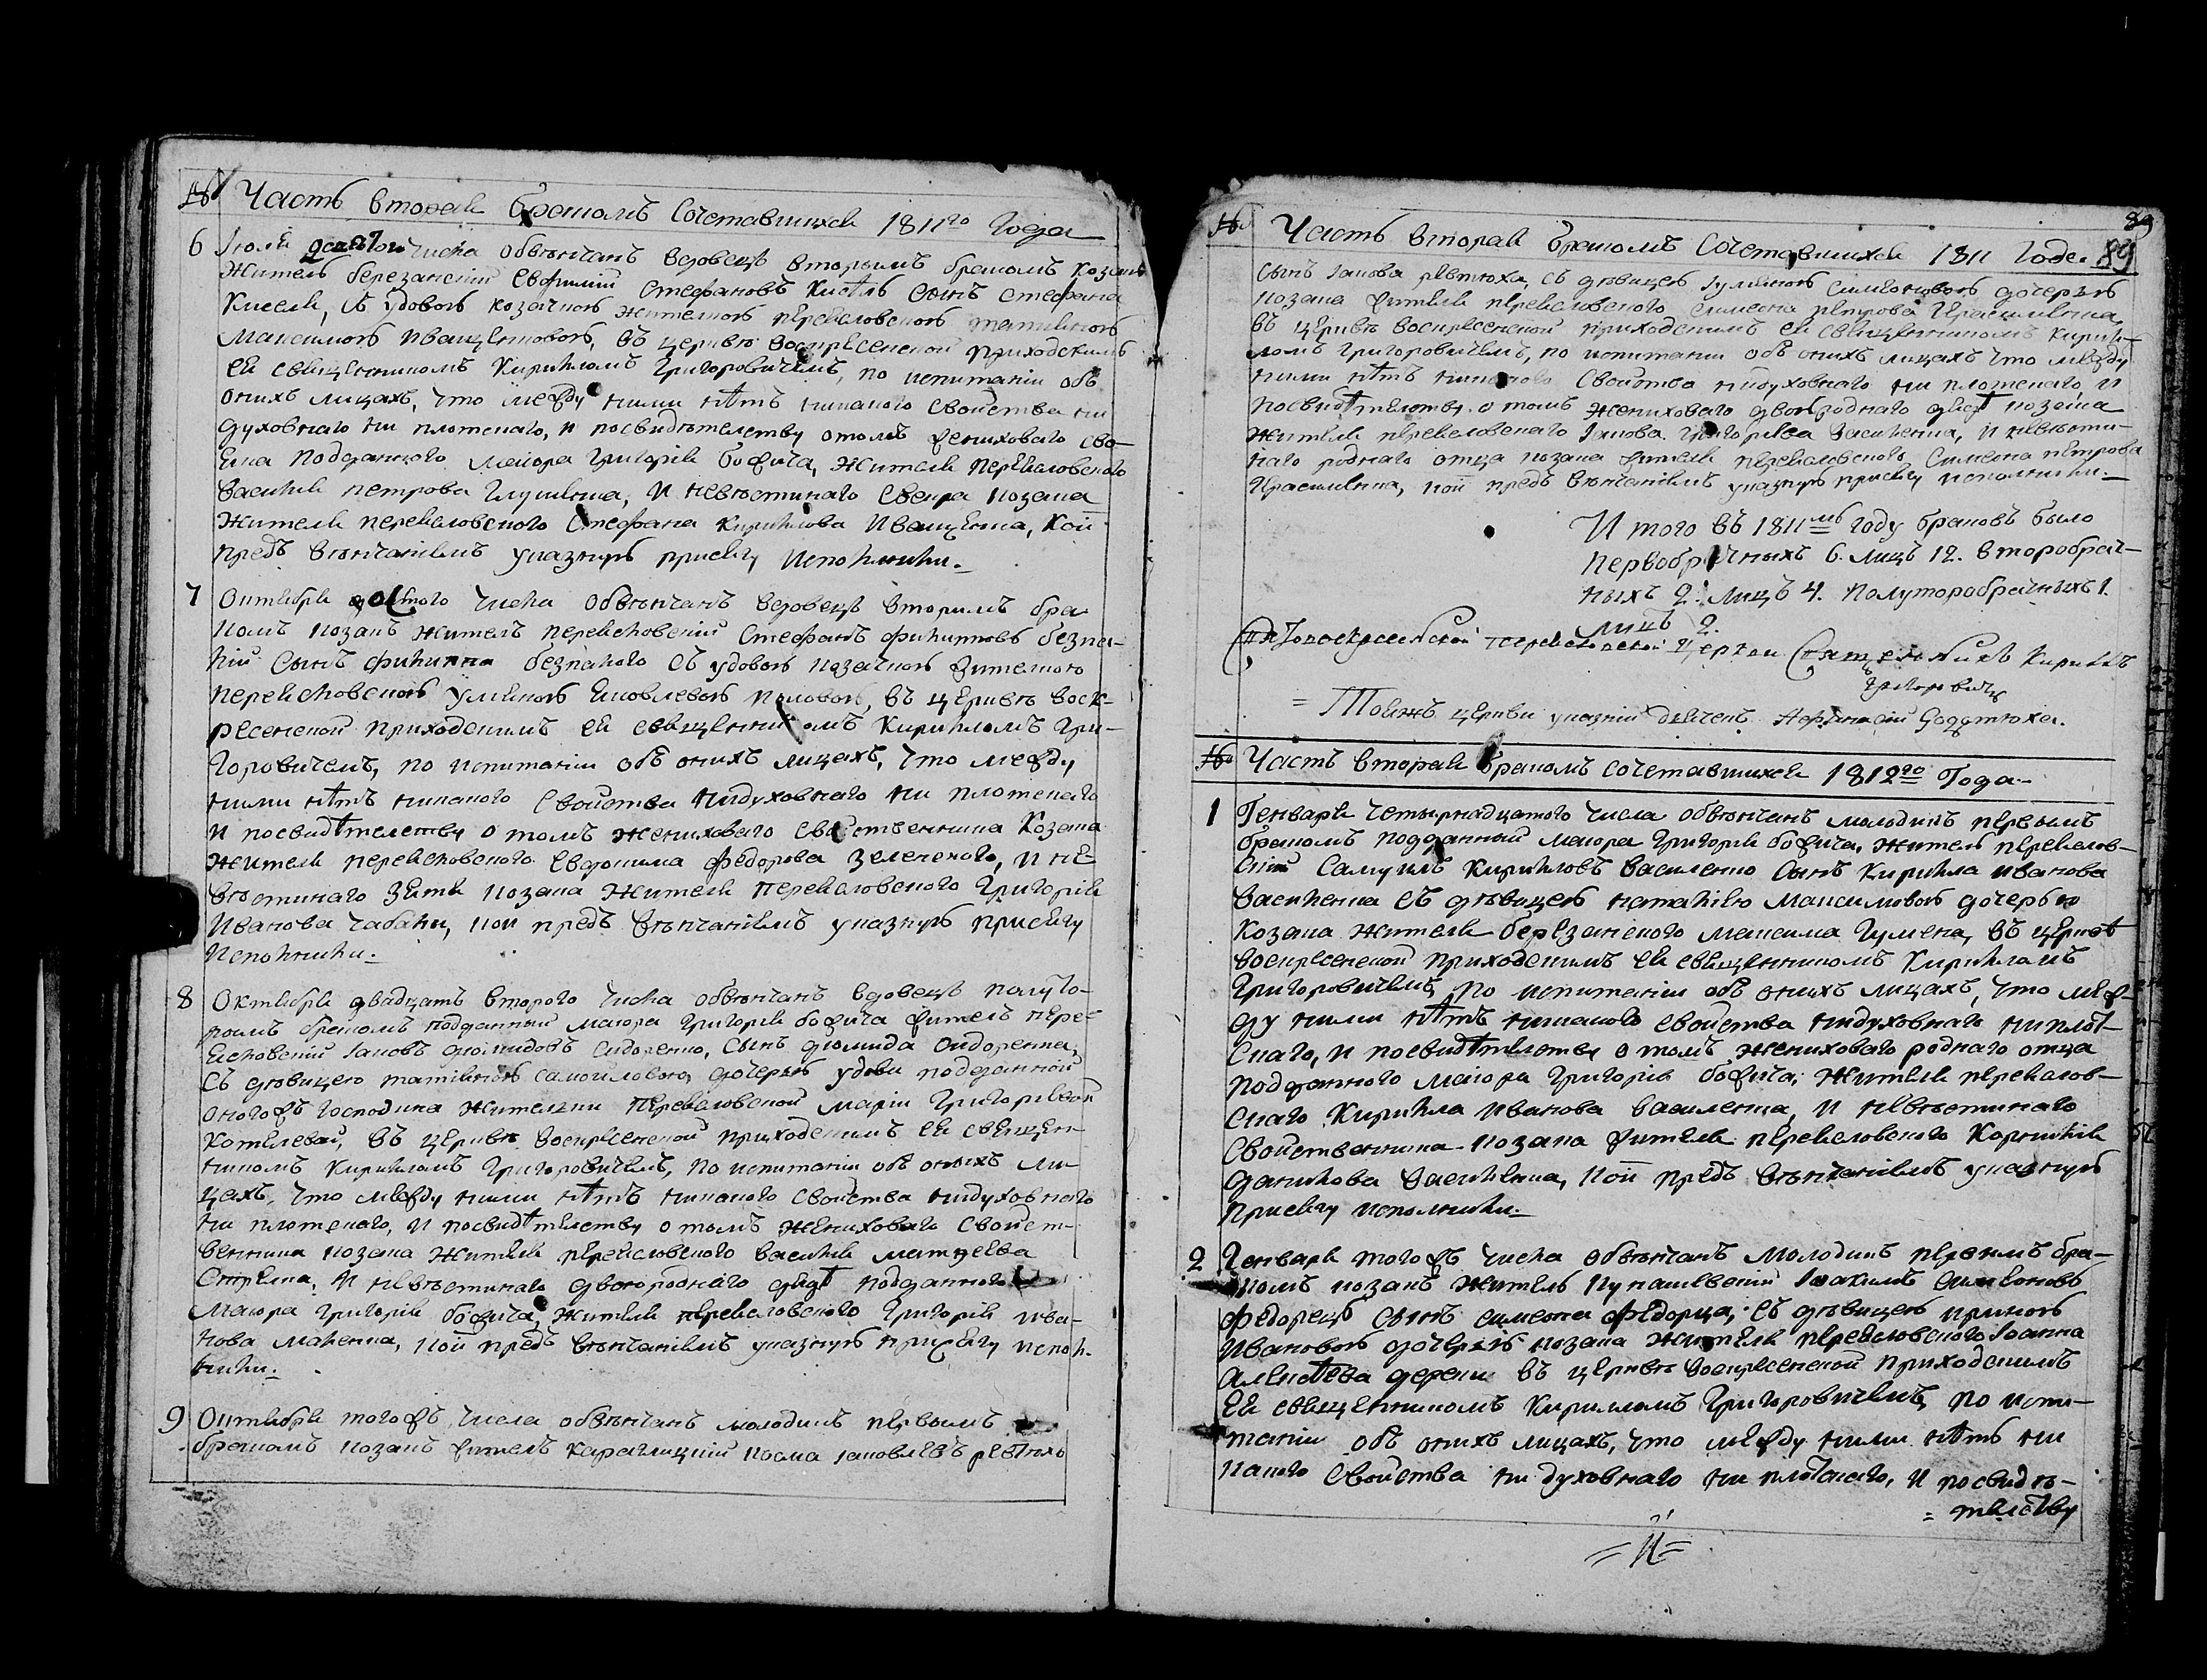 № Часть вторая бракомъ Сочетавшихся 1811го Года
6 Іюля числа обвѣнчанъ вдовецъ вторымъ бракомъ Козакъ
Житель березанскій Стефановъ Кисѣль Сынъ Стефана
Киселя, съ удовою козачкою жителкою переяловскою татияною
Максимовою Иващенковою, въ церквѣ воскресенской приходскимъ
ея священникомъ Кириломъ Григоровичемъ, по испитаніи объ
онихъ лицахъ, что между ними нѣтъ никакого свойства ни
духовнаго ни плотскаго, и посвидѣтелству отомъ жениховаго сво-
яка Подданного маіора Григорія божича, жителя переяловского
Василія петрова Глушенка, и невѣстинаго свекра козака
Жителя переяловского Стефана Кирилова Иващенка, кои
предъ вѣнчаніемъ указную присягу исполнили.
7 Октября числа обвѣнчанъ вдовецъ вторимъ бра-
комъ козакъ житель переяловскій Стефанъ филипповъ безпа-
лій Сынъ филиппа безпалого съ удовою козачкою жителкою
переяловскою Улияною Яковлевою Поповою, въ церквѣ воск-
ресенской приходскимъ ея священникомъ Кириломъ Гри-
горовичемъ, по испитаніи объ онихъ лицахъ, что между
ними нѣтъ никакого свойства нидуховнаго ни плотскаго
и посвидѣтелству о томъ жениховаго свойственника Козака
жителя переяловского Евдокима федорова зеленского, и не-
вѣстинаго зятя козака жителя переяловского Григорія
Иванова чабана, кои предъ вѣнчаніемъ указную присягу
Исполнили.
8 Октября двадцать второго числа обвѣнчанъ вдовецъ полуто-
рнымъ бракомъ подданный маіора Григорія божича жителъ пере-
яловскій Іаковъ діомидовъ Сидоренко, сынъ діомида Сидоренка,
съ дѣвицею татияною самоиловою, дочерью удови подданной
оногожъ господина жителки переяловской Маріи Григоріевой
Котелевой, въ церквѣ воскресенской приходскимъ ея священ-
никомъ Кириломъ Григоровичемъ, по испитаніи объ онихъ ли-
цахъ, что между ними нѣтъ никакого свойства нидуховнаго
ни плотскаго, и посвидѣтелству о томъ жениховаго свойст-
венника козака жителя переяловского василія матвѣева
И невѣстинаго двоюроднаго дядѣ подданного
Маіора Григорія божича, жителя переяловского Григорія ива-
нова кои предъ вѣнчаніемъ указную присягу испол-
нили.
9 Октября тогожъ числа обвѣнчанъ молодикъ первымъ
бракомъ козакъ жителъ косма іаковлевъ ревтюхъ
№ Часть вторая бракомъ Сочетавшихся 1811 Года. 89
сынъ Іакова ревтюха, съ дѣвицею Іулияною Симеоновою дочерью
козака жителя переяловского симеона петрова Герасименка,
въ церквѣ воскресенской приходскимъ ея священникомъ Кири-
ломъ Григоровичемъ, по испитаніи объ онихъ лицахъ что между
ними нѣтъ никакого свойства нидуховнаго ни плотскаго и
посвидѣтелству о томъ жениховаго двоюроднаго дядѣ козака
жителя переяловского Іакова Григоріева Василенка, и невѣсти-
наго роднаго отца козака жителя переяловского Симеона петрова
Герасименка, кои предъ вѣнчаніемъ указную присягу исполнили.
И того въ 1811мъ году браковъ было
первобрачныхъ 6. лицъ 12. второбрач-
ныхъ 2. лицъ 4. полуторобрачныхъ 1.
лицъ 2.
церкви Священникъ Кирилъ
Григоровичъ
= Тоижъ церкви указній дячекъ
№ Часть вторая бракомъ сочетавшихся 1812го Года
1 Генваря четырнадцатого числа обвѣнчанъ молодикъ первымъ
бракомъ подданный маіора Григорія божича, житель переялов-
скій Самуилъ Кириловъ Василенко Сынъ Кирила иванова
Василенка съ дѣвицею наталіею Максимовою дочерью
Козака жителя березанского максима Гумена, въ церквѣ
воскресенской приходскимъ ея священникомъ Кириломъ
Григоровичемъ, по испитаніи объ онихъ лицахъ, что меж-
ду ними нѣтъ никакого свойства нидуховнаго ниплот-
скаго, и посвидѣтелству о томъ жениховаго роднаго отца
подданного маіора Григорія божича, жителя переялов-
скаго Кирила иванова Василенка, и невѣстинаго
свойственника козака жителя переяловского Корнилія
данилова Василенка, кои предъ вѣнчаніемъ указную
присягу исполнили.
2 Генваря тогожъ числа обвѣнчанъ молодикъ первимъ бра-
комъ козакъ житель Іоакимъ Симеоновъ
федорецъ Сынъ симеона федорца, съ дѣвицею ириною
Ивановою дочерью козака жителя переяловского Іоанна
Алексѣева въ церквѣ воскресенской приходскимъ
ея священникомъ Кириломъ Григоровичемъ, по испи-
таніи объ онихъ лицахъ, что между ними нѣтъ ни
какого свойства ни духовнаго ни плотскаго, и посвидѣ-
= телству